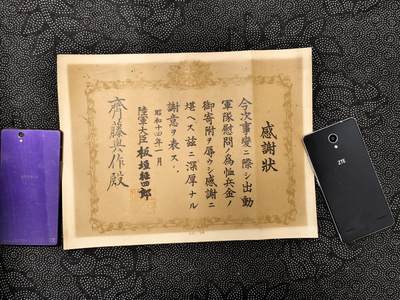 感謝狀
今次事變ニ際シ出動
軍隊慰問ノ為恤兵金ノ
御寄附ヲ辱ウシ感謝ニ
堪ヘス茲ニ深厚ナル
謝意ヲ表ス
昭和十四年一月
陸軍大臣 板垣征四郎
齊藤與作殿
ZTE